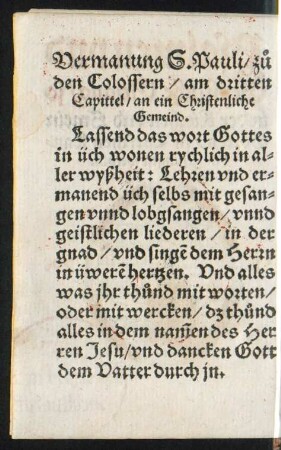 Vermanung S. Pauli/ zů
den Colossern/ am dritten
Capittel/ an ein Christenliche
Gemeind.
Lassend das wort Gottes
in üch wonen rychlich in al-
ler wyßheit: Lehren vnd er-
manend üch selbs mit gesan-
gen vnnd lobgsangen/ vnnd
geistlichen liederen/ in der
gnad/ vnd singẽ dem Herrn
in üwerẽ hertzen. Vnd alles
was jhr thůnd mit worten/
oder mit wercken/ dz thůnd
alles in dem nam̃en des Her
ren Jesu/ vnd dancken Gott
dem Vatter durch jn.